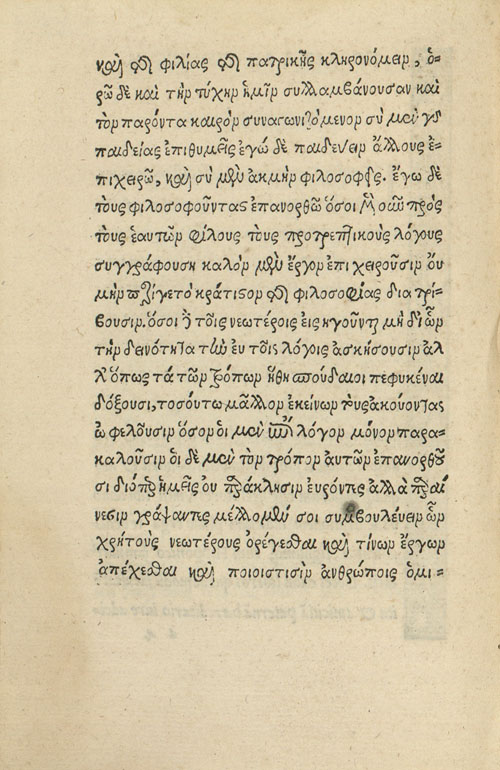 καὶ τῆς φιλίας τῆς πατρικῆς κληρονόμειν, ὁ-
ρῶ δὲ καὶ τὴν τύχην ἡμῖν συλλαμβάνουσαν καὶ
τὸν παρόντα καιρὸν συναγωνιζόμενον σὺ μὲν γὸ
παιδείας ἐπιθυμεῖς ἐγώ δὲ παιδεύειν ἄλλους ἐ-
πιχειρῶ, καὶ σὺ μὲν ἀκμὴν φιλοσοφεῖς. ἔγω δὲ
τοὺς φιλοσοφοῦντας ἐπανορθῶ ὅσοι μὲν οὖν πρὸς
τοὺς ἑαυτῶν φίλους τοὺς προτρεπτικοὺς λόγους
συγγράφουσιν καλὸν μὲν ἔργον ἐπιχειροῦσιν ὄυ
μὴν περί γε τὸ κράτιστον τῆς φιλοσοφίας διατρί-
βουσιν. ὅσοι δὲ τοῖς νεωτέροις εἰσηγοῦνται μὴ δι ὧν
τὴν δεινότητα τὴν ἐν τοῖς λόγοις ἀσκήσουσιν ἀλ
λ' ὅπως τὰ τῶν τρόπων ἤθη σπούδαιοι πεφυκέναι
δόξουσι, τοσούτω μᾶλλον ἐκείνων τοὺς ἀκούοντας
ὠφελοῦσιν ὅσον ὁι μὲν ἐπὶ λόγον μόνον παρα-
καλοῦσιν ὁι δὲ μὲν τὸν τρόπον αὐτῶν ἐπανορθοῦ
σι διόπερ ἡμεῖς ου παράκλησιν ἑυρόντες ἀλλὰ παραί
νεσιν γράψαντες μέλλομέν σοι συμβουλέυειν ὧν
χρὴ τοὺς νεωτέρους ὀρέγεσθαι καὶ τίνων ἔργων
ἀπέχεσθαι καὶ ποιοιστισὶν ἀνθρώποις ὁμι-